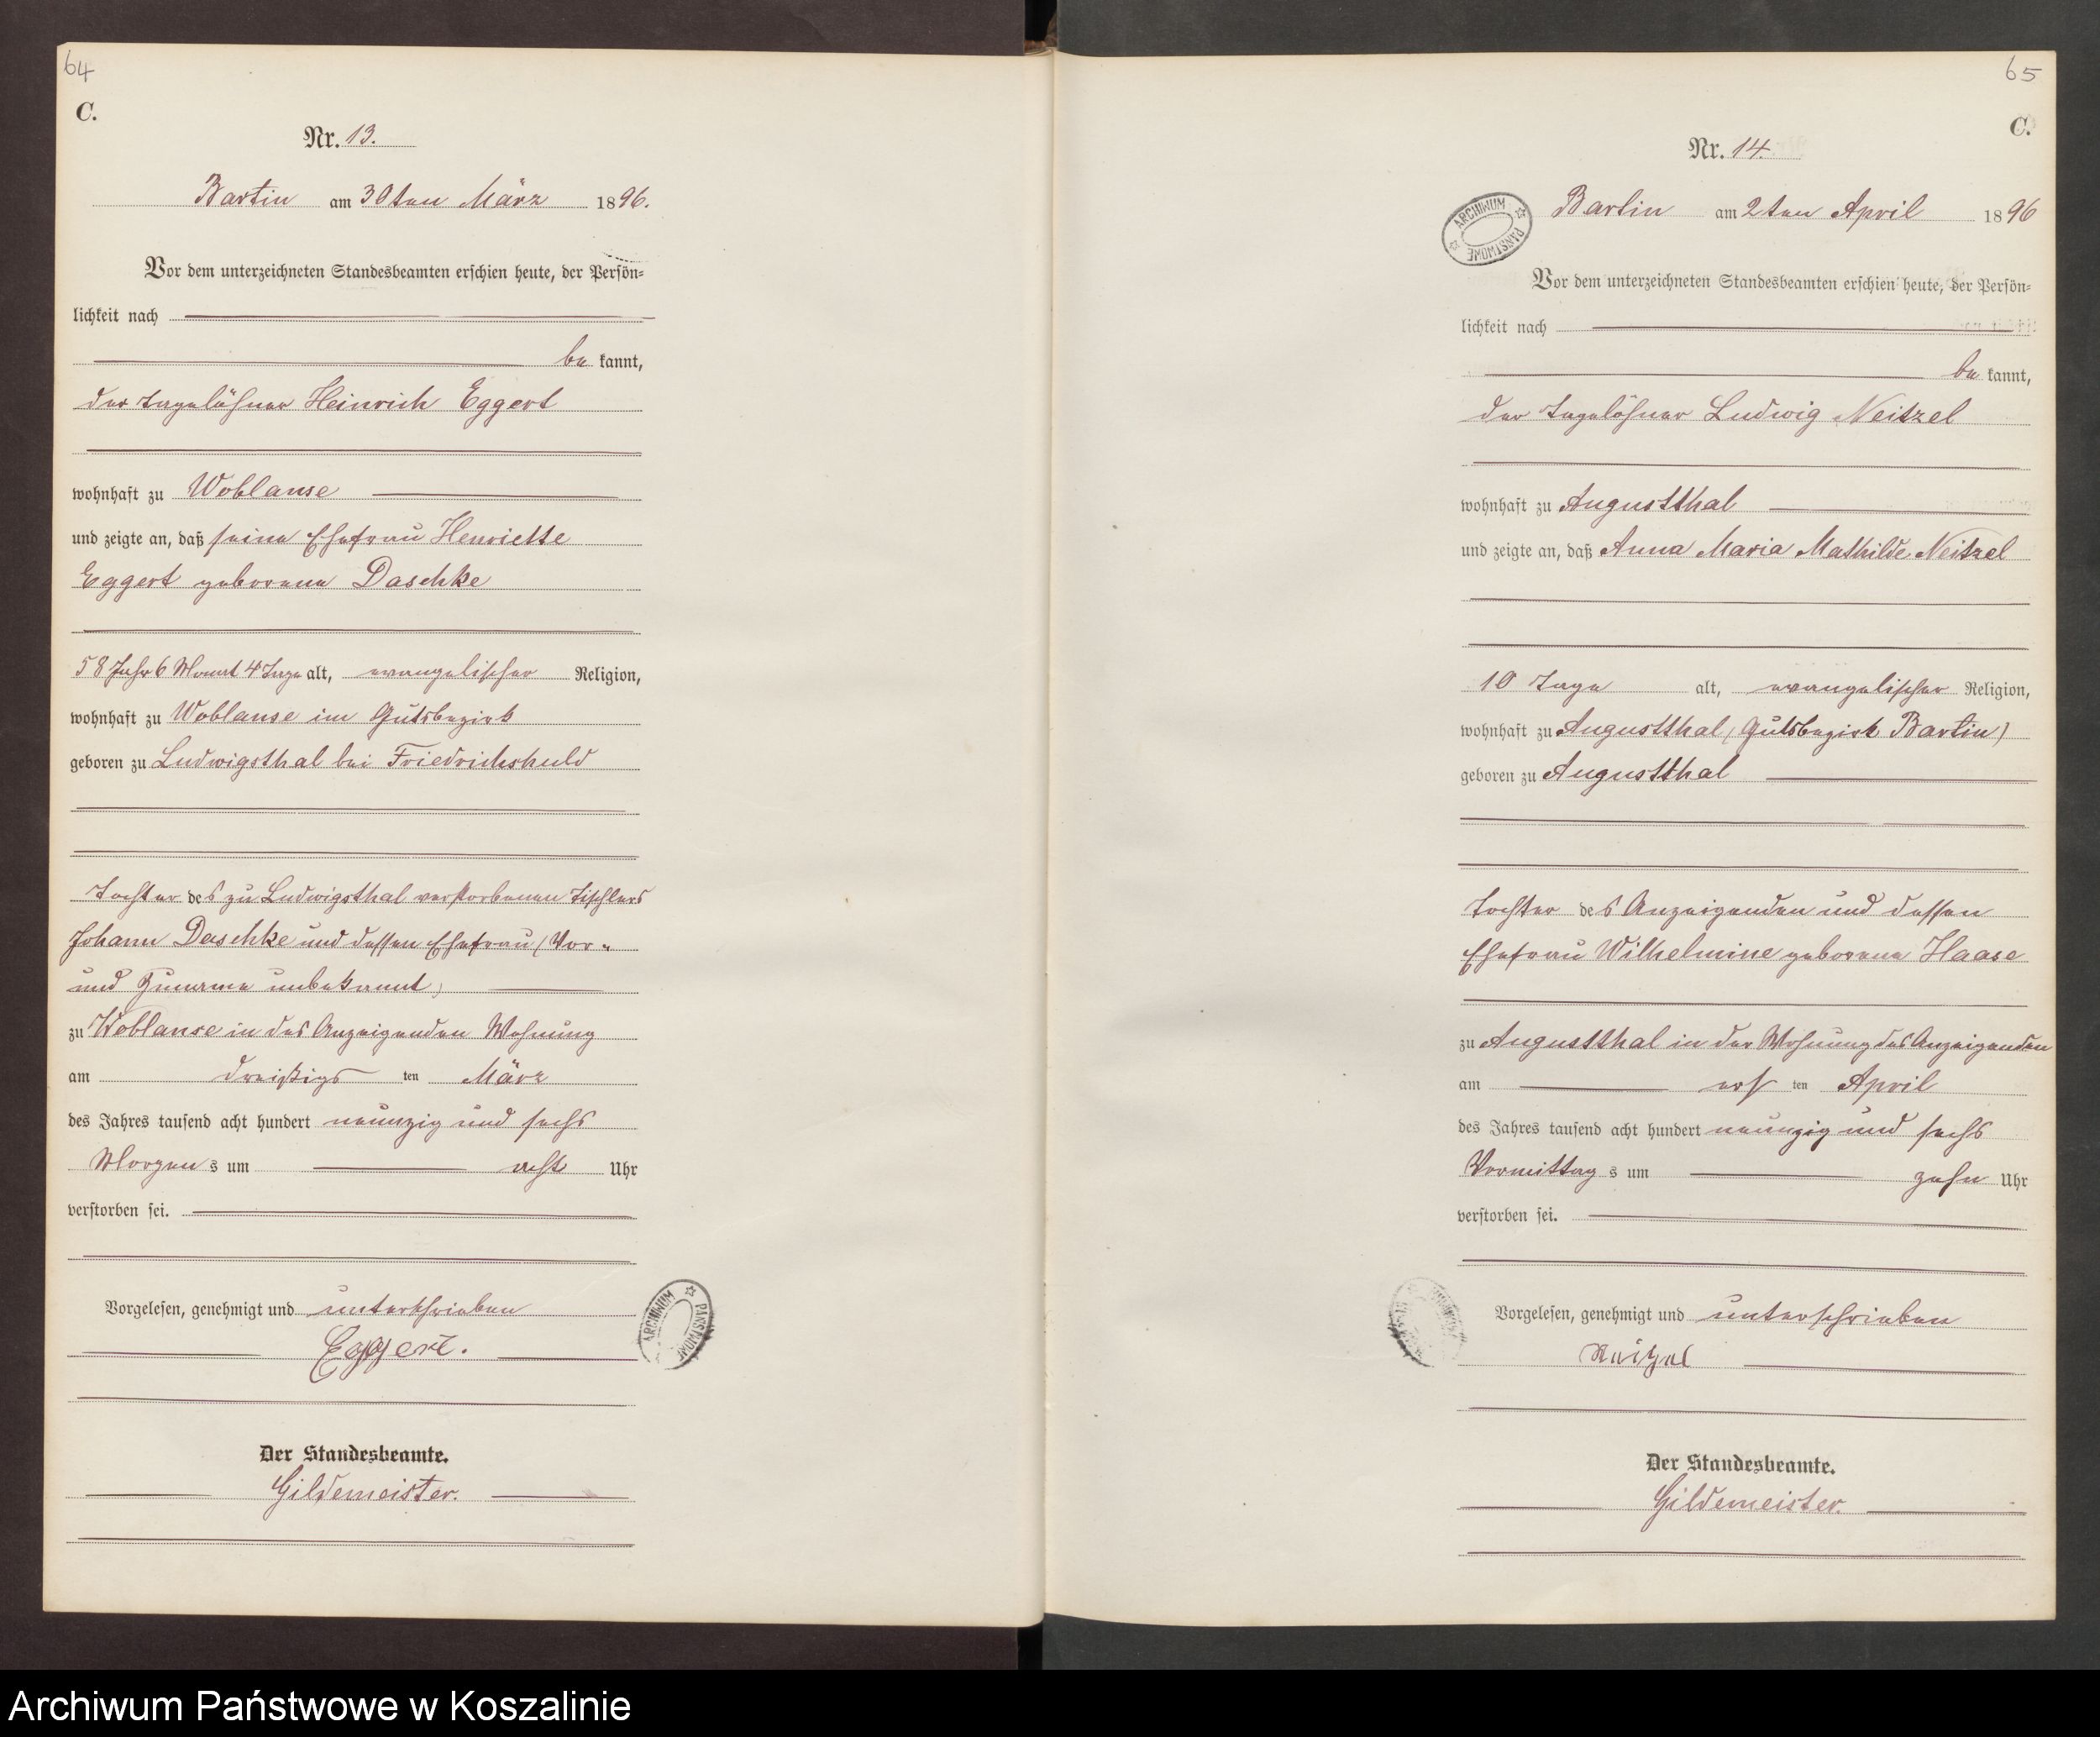 64
C.
Nr. 13.
Bartin am 30ten März 1896.
Vor dem unterzeichneten Standesbeamten erschien heute, der Persön-
lichkeit nach
be kannt,
der Tagelöhner Heinrich Eggert
wohnhaft zu Woblanse
und zeigte an, daß seine Ehefrau Henriette
Eggert geborene Daschke
58 Jahr 6 Monat 4 Tage alt, evangelischer Religion,
wohnhaft zu Woblanse im Gutsbezirk
geboren zu Ludwigsthal bei Friedrichshuld
Tochter des zu Ludwigsthal verstorbenen Tischlers
Johann Daschke und dessen Ehefrau (Vor-
und Zuname unbekannt)
zu Woblanse in des Anzeigenden Wohnung
am dreißigs ten März
des Jahres tausend acht hundert neunzig und sechs
Morgen s um acht Uhr
verstorben sei.
Vorgelesen, genehmigt und unterschrieben
Eggert.
Der Standesbeamte.
Gildemeister.
ARCHIWUM PAŃSTWOWE
65
C.
Nr. 14.
Bartin am 2ten April 1896
ARCHIWUM PAŃSTWOWE
Vor dem unterzeichneten Standesbeamten erschien heute, der Persön-
lichkeit nach
be kannt,
der Tagelöhner Ludwig Neitzel
wohnhaft zu Augustthal
und zeigte an, daß Anna Maria Mathilde Neitzel
10 Tage alt, evangelischer Religion,
wohnhaft zu Augustthal (Gutsbezirk Bartin)
geboren zu Augustthal
Tochter des Anzeigenden und dessen
Ehefrau Wilhelmine geborene Haase
zu Augustthal in der Wohnung des Anzeigenden
am ers ten April
des Jahres tausend acht hundert neunzig und sechs
Vormittag s um zehn Uhr
verstorben sei.
Vorgelesen, genehmigt und unterschrieben
Neitzel
Der Standesbeamte.
Gildemeister.
Archiwum Państwowe w Koszalinie